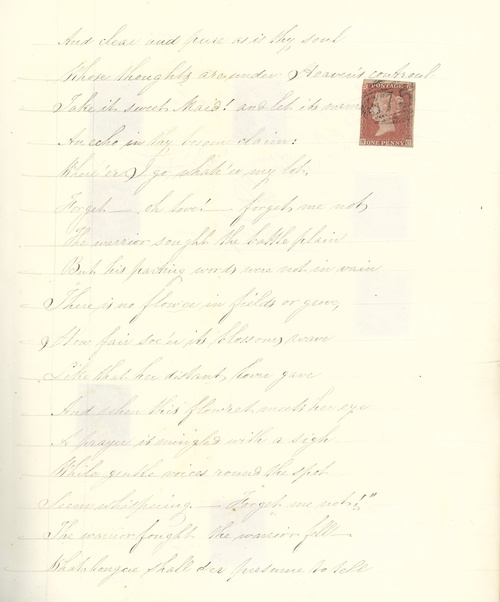 And clear and pure as is thy soul
Whose thoughts are under Heaven's controul
Take it sweet Maid! and let its name
POSTAGE
ONE PENNY
An echo in thy bosom claim:
Where'er I go whate'er my lot
Forget — oh love! — forget me not,
The warrior sought the battle plain
But his parting words were not in vain
There is no flower in fields or grove,
How fair soe'er its blossoms wave
Like that her distant lover gave
And when this flowret meets her eye
A prayer is mingled with a sigh
While gentle voices round the spot
Seem whispering — Forget me not!"
The warrior fought, the warrior fell —
What tongue shall e'er presume to tell